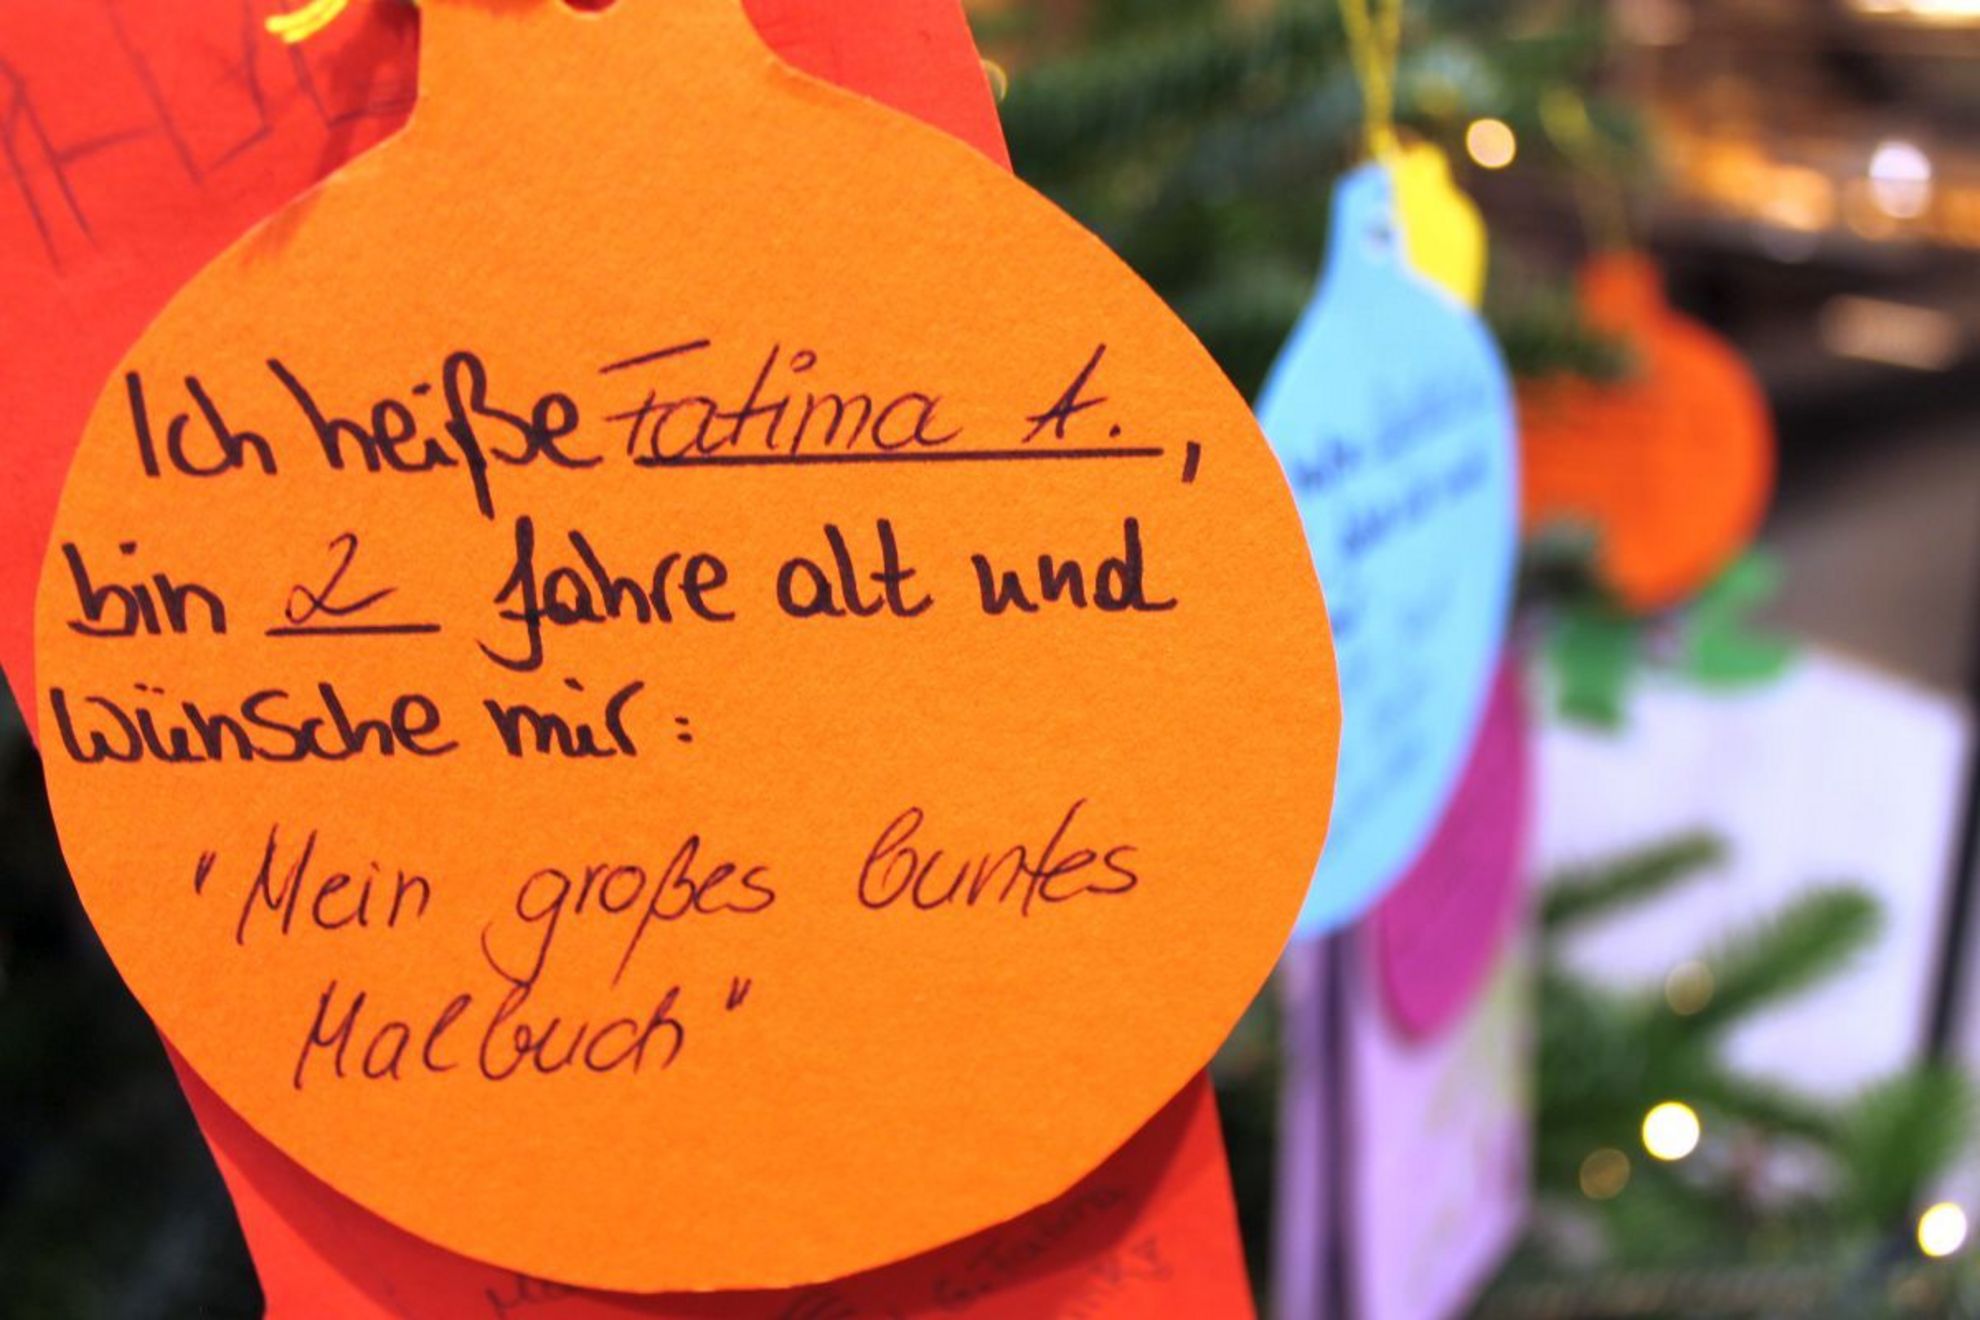 Ich heiße Fatima A.,
bin 2 Jahre alt und
wünsche mir:
"Mein großes buntes
Malbuch"